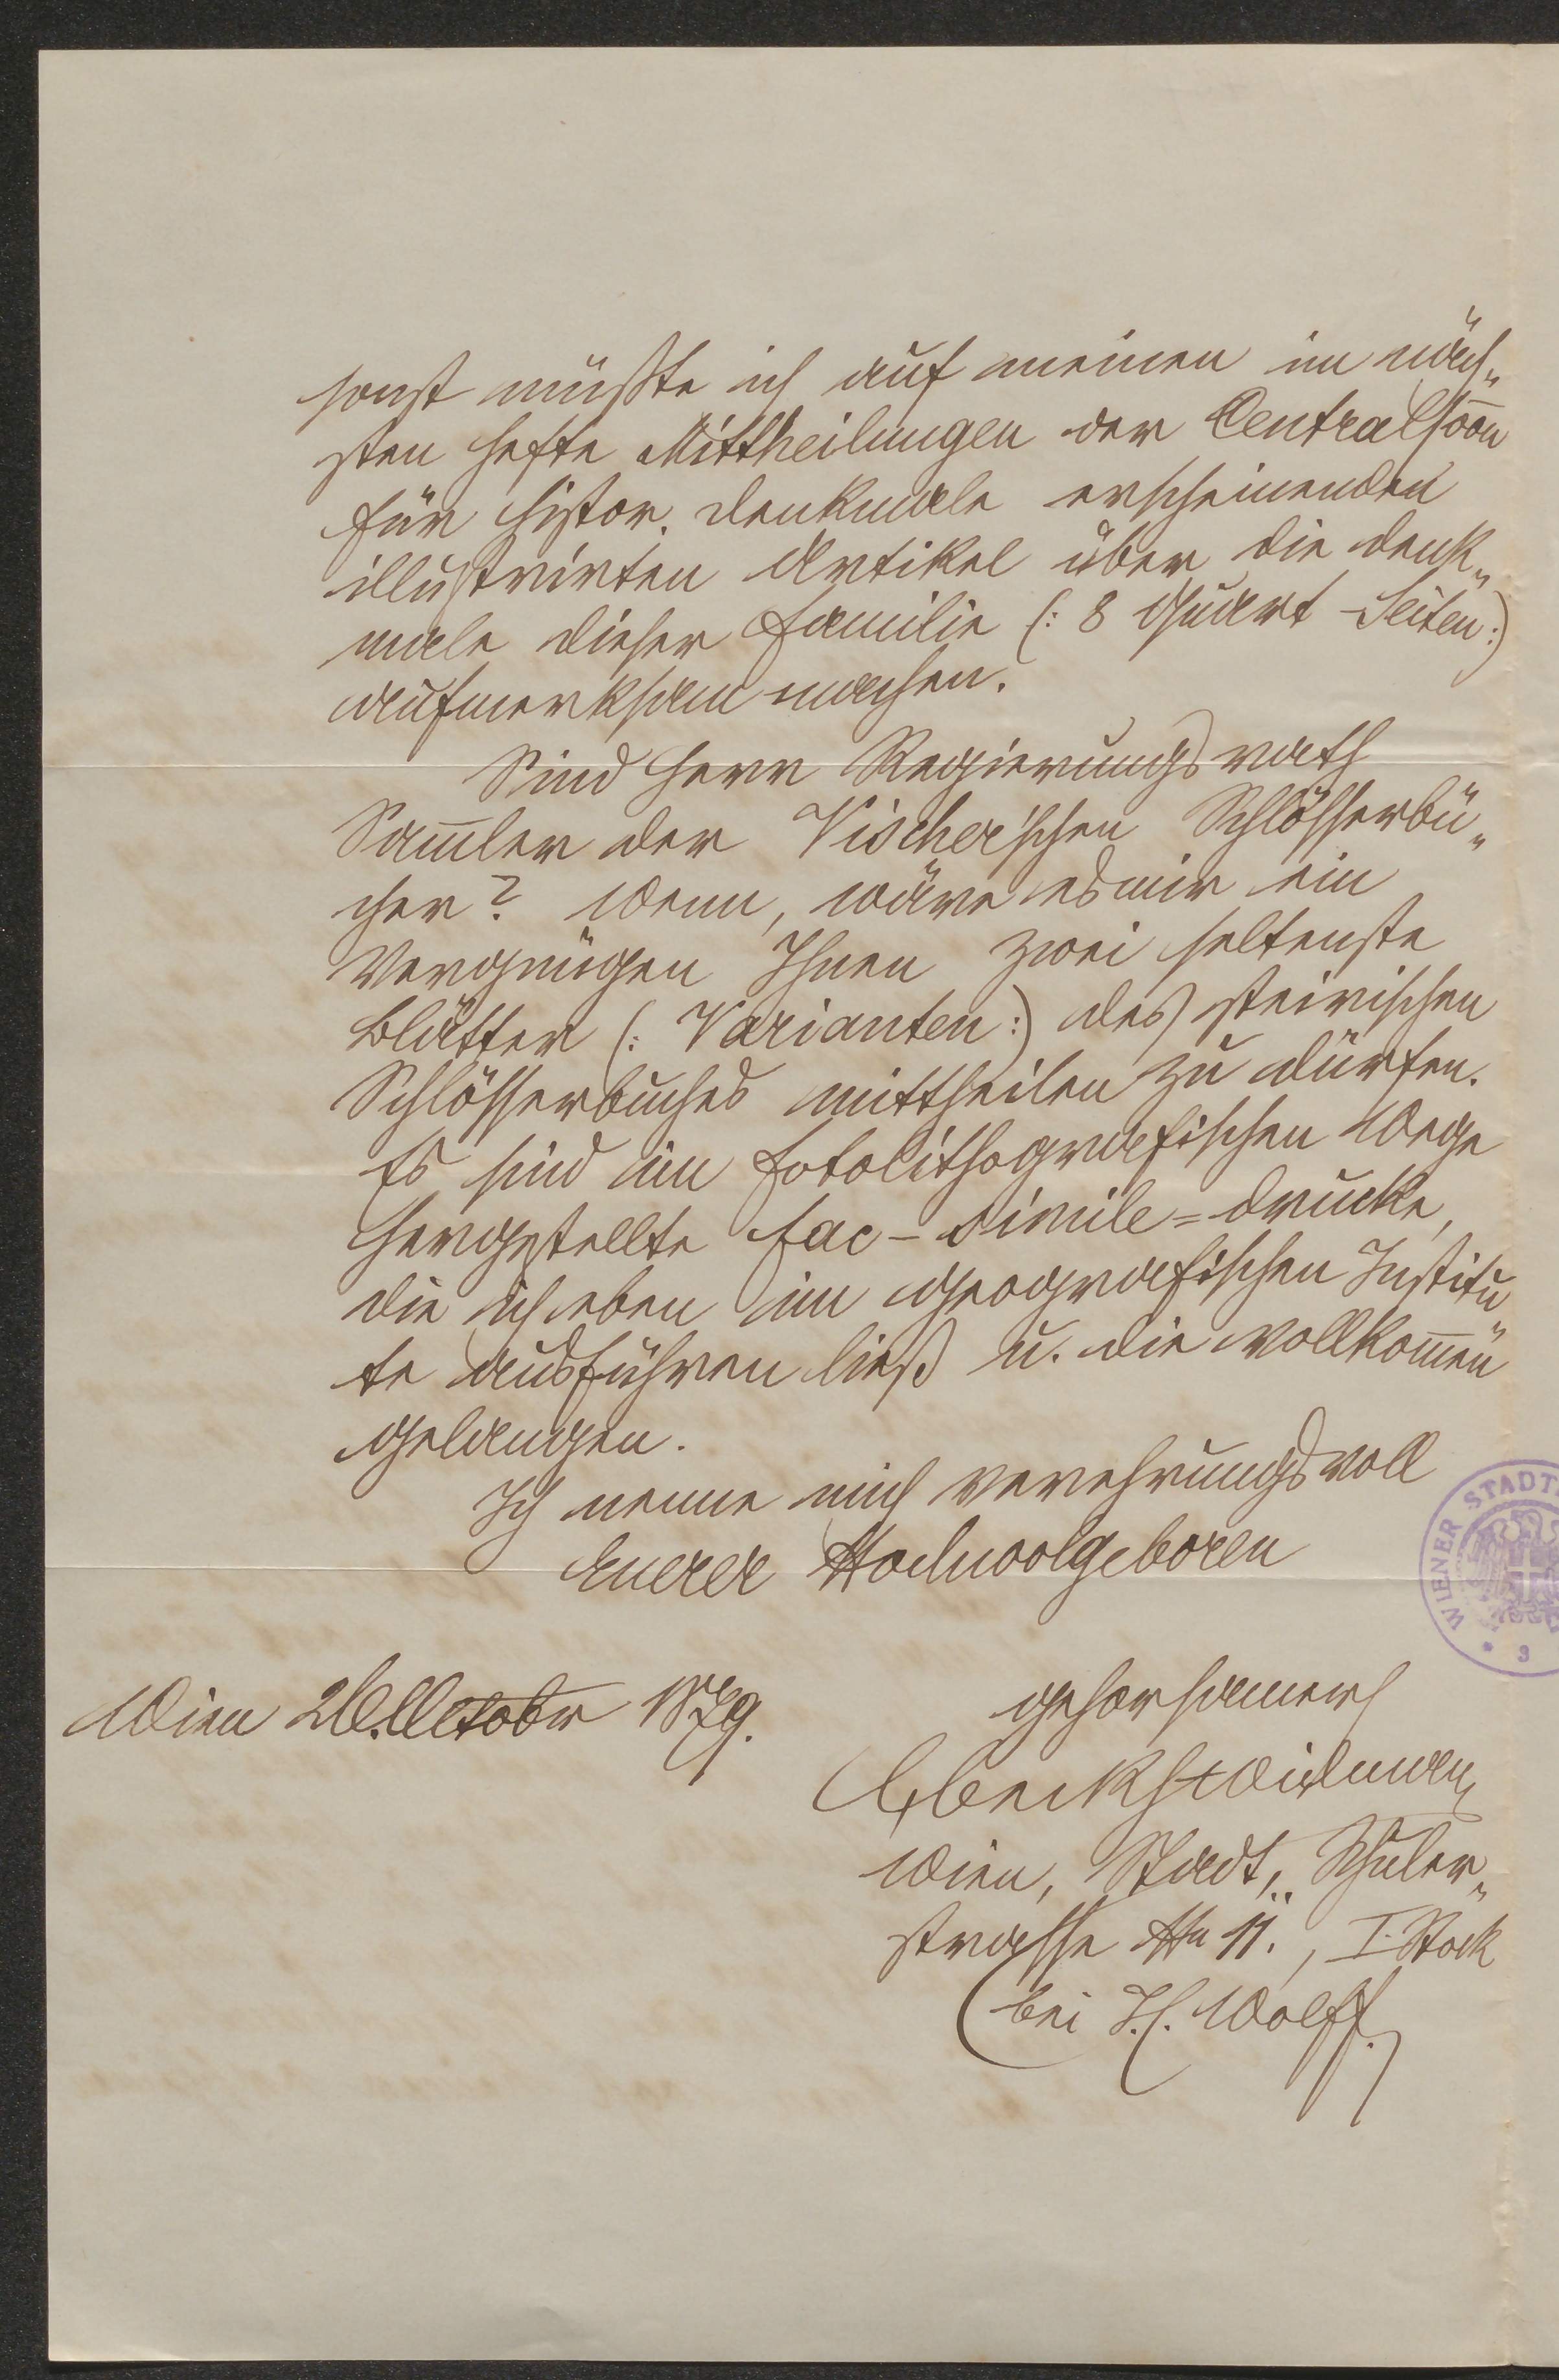 sonst müßte ich auf meinen im näch„
sten Hefte Mittheilungen der Central
für histor. Denkmale erscheinenden
illustrirten Artikel über die Denk„
male dieser Familie (: 8 Quart-Seiten :)
aufmerksam machen.
Sind Herr Regierungsrath
Sam̄ler der Vischer'schen Schlösserbü„
cher? Wenn, wäre es mir ein
Vergnügen Ihnen zwei seltenste
Blätter (: Varianten :) des steirischen
Schlösserbuches mittheilen zu dürfen.
Es sind im fotolithografischen Wege
hergestellte Fac-Simile=Drucke,
die ich eben im geografischen Institu
te ausführen ließ u. die vollkom̄en
gelangen.
Ich nenne mich verehrungsvoll
Euerer Hochwolgeboren
Wien 26. October 1879.
gehorsamer
Wien, Stadt, Schuler„
strasse No 11., I. Stock
bei J. C. Wolff.
WIENER STADT
3